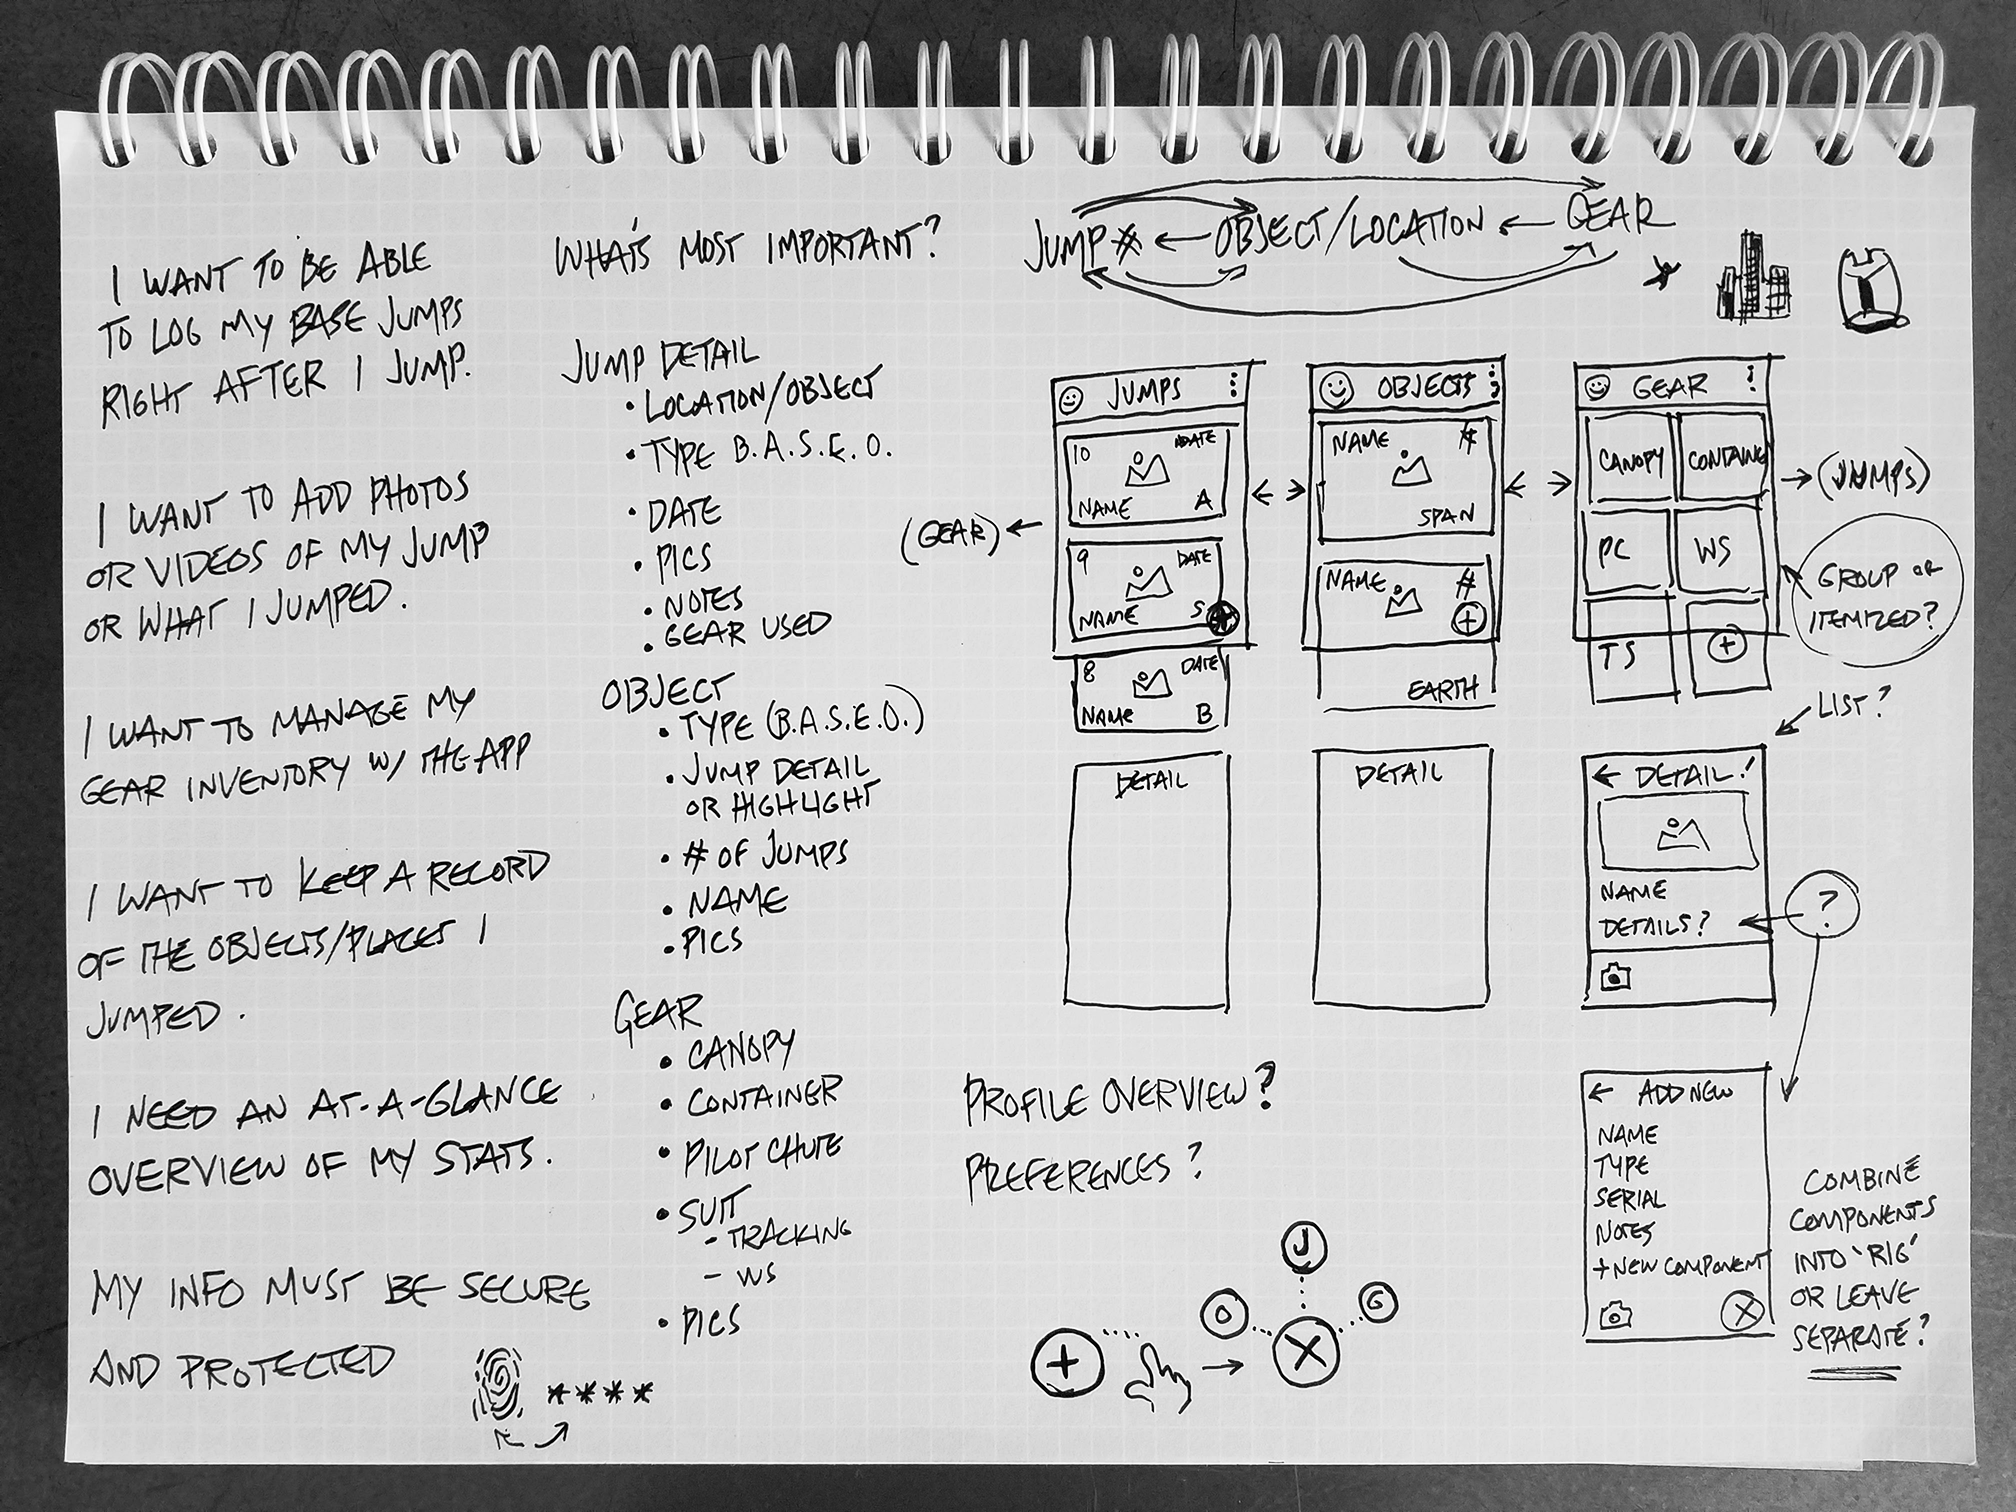 I WANT TO BE ABLE
TO LOG MY BASE JUMPS
RIGHT AFTER I JUMP.
I WANT TO ADD PHOTOS
OR VIDEOS OF MY JUMP
OR WHAT I JUMPED.
I WANT TO MANAGE MY
GEAR INVENTORY W/ THE APP
I WANT TO KEEP A RECORD
OF THE OBJECTS/PLACES I
JUMPED.
I NEED AN AT-A-GLANCE
OVERVIEW OF MY STATS.
MY INFO MUST BE SECURE
AND PROTECTED
****
WHAT'S MOST IMPORTANT?
JUMP DETAIL
• LOCATION/OBJECT
• TYPE B.A.S.E.O.
• DATE
• PICS
• NOTES
• GEAR USED
OBJECT
• TYPE (B.A.S.E.O.)
• JUMP DETAIL
OR HIGHLIGHT
• # OF JUMPS
• NAME
• PICS
GEAR
• CANOPY
• CONTAINER
• PILOT CHUTE
• SUIT
- TRACKING
- WS
• PICS
JUMP # ← OBJECT/LOCATION ← GEAR
JUMPS
10 DATE
NAME A
9 DATE
NAME S
8 DATE
NAME B
(GEAR) ←
DETAIL
OBJECTS
NAME #
SPAN
NAME #
+
EARTH
DETAIL
GEAR
CANOPY CONTAINE
PC WS
TS +
→ (JUMPS)
GROUP OR
ITEMIZED?
LIST?
← DETAIL
NAME
DETAILS?
?
← ADD NEW
NAME
TYPE
SERIAL
NOTES
+ NEW COMPONENT
X
COMBINE
COMPONENTS
INTO 'RIG'
OR LEAVE
SEPARATE?
PROFILE OVERVIEW?
PREFERENCES?
J
O G
+ → X